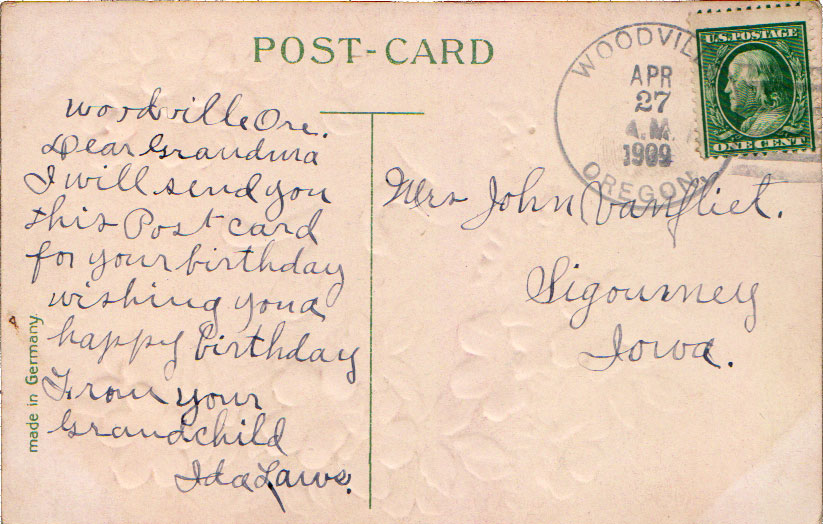 POST-CARD
WOODVIL
APR
27
A.M.
1909
OREGON
U.S. POSTAGE
ONE CENT
Woodville Ore.
Dear Grandma
I will send you
this Post card
for your birthday
wishing you a
happy birthday
From your
Grandchild
Ida Laws.
Mrs John Vanfliet.
Sigourney
Iowa.
made in Germany